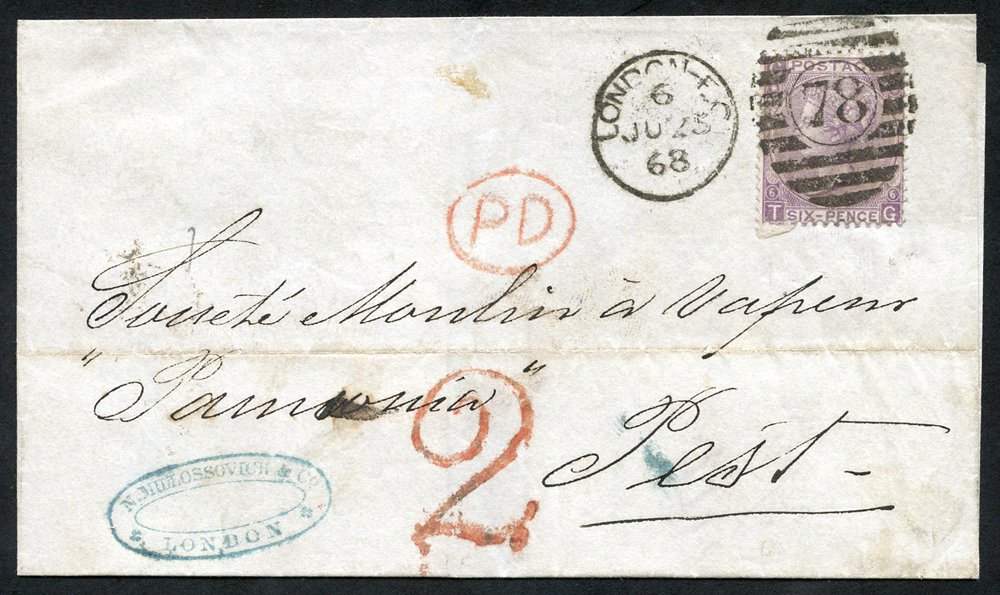 LONDON-E.C
6
JU 25
68
POSTAG
78
6 6
T SIX-PENCE G
PD
Societé Moulin à Vapeur
"Pannonia"
2
Pest
N. MILLOSSOVICH & CO
LONDON